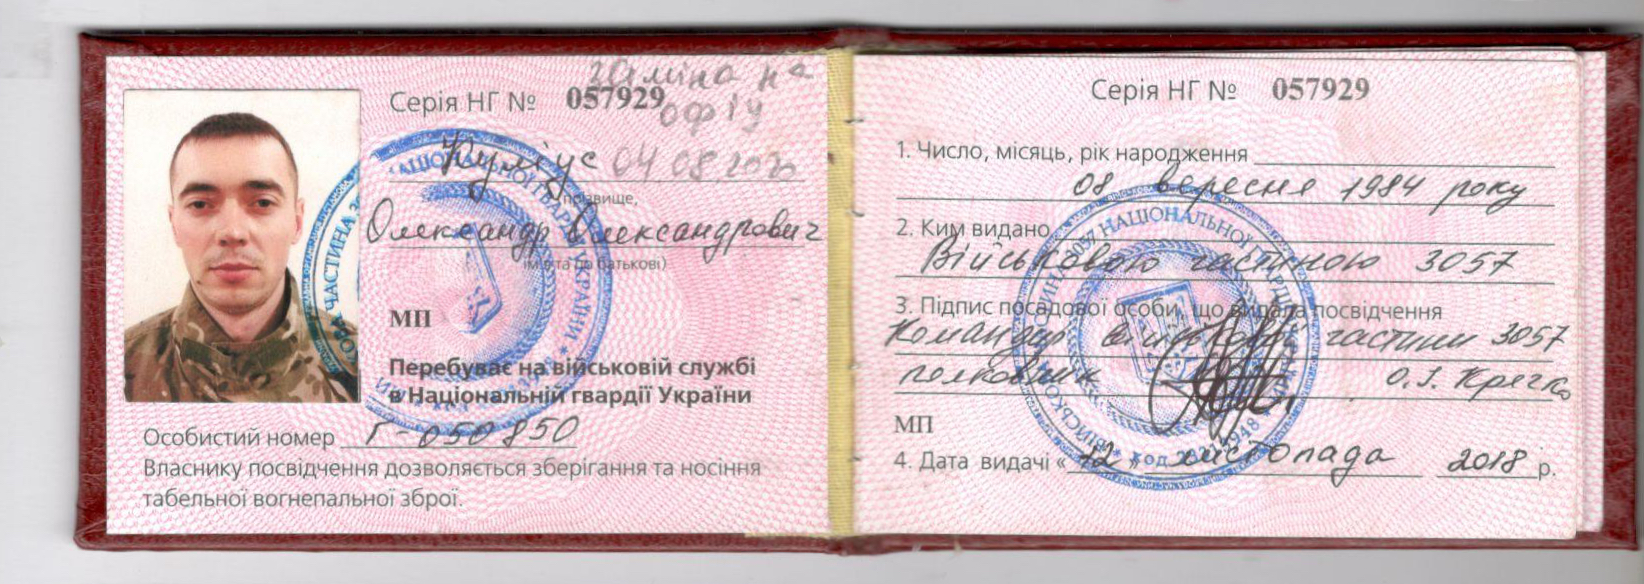 Серія НГ № 057929
заміна на
офіц
Кумгус 04 08.2020
прізвище,
Олександр Олександрович
ім'я та по батькові)
МП
Перебуває на військовій службі
в Національній гвардії України
Особистий номер Г-050850
Власнику посвідчення дозволяється зберігання та носіння
табельної вогнепальної зброї.
Серія НГ № 057929
1. Число, місяць, рік народження
08 вересня 1984 року
2. Ким видано
Військовою частиною 3057
3. Підпис посадової особи, що видала посвідчення
Командир військової частини 3057
полковник О.І. Крячко
МП
4. Дата видачі « 12 » листопада 2018 р.